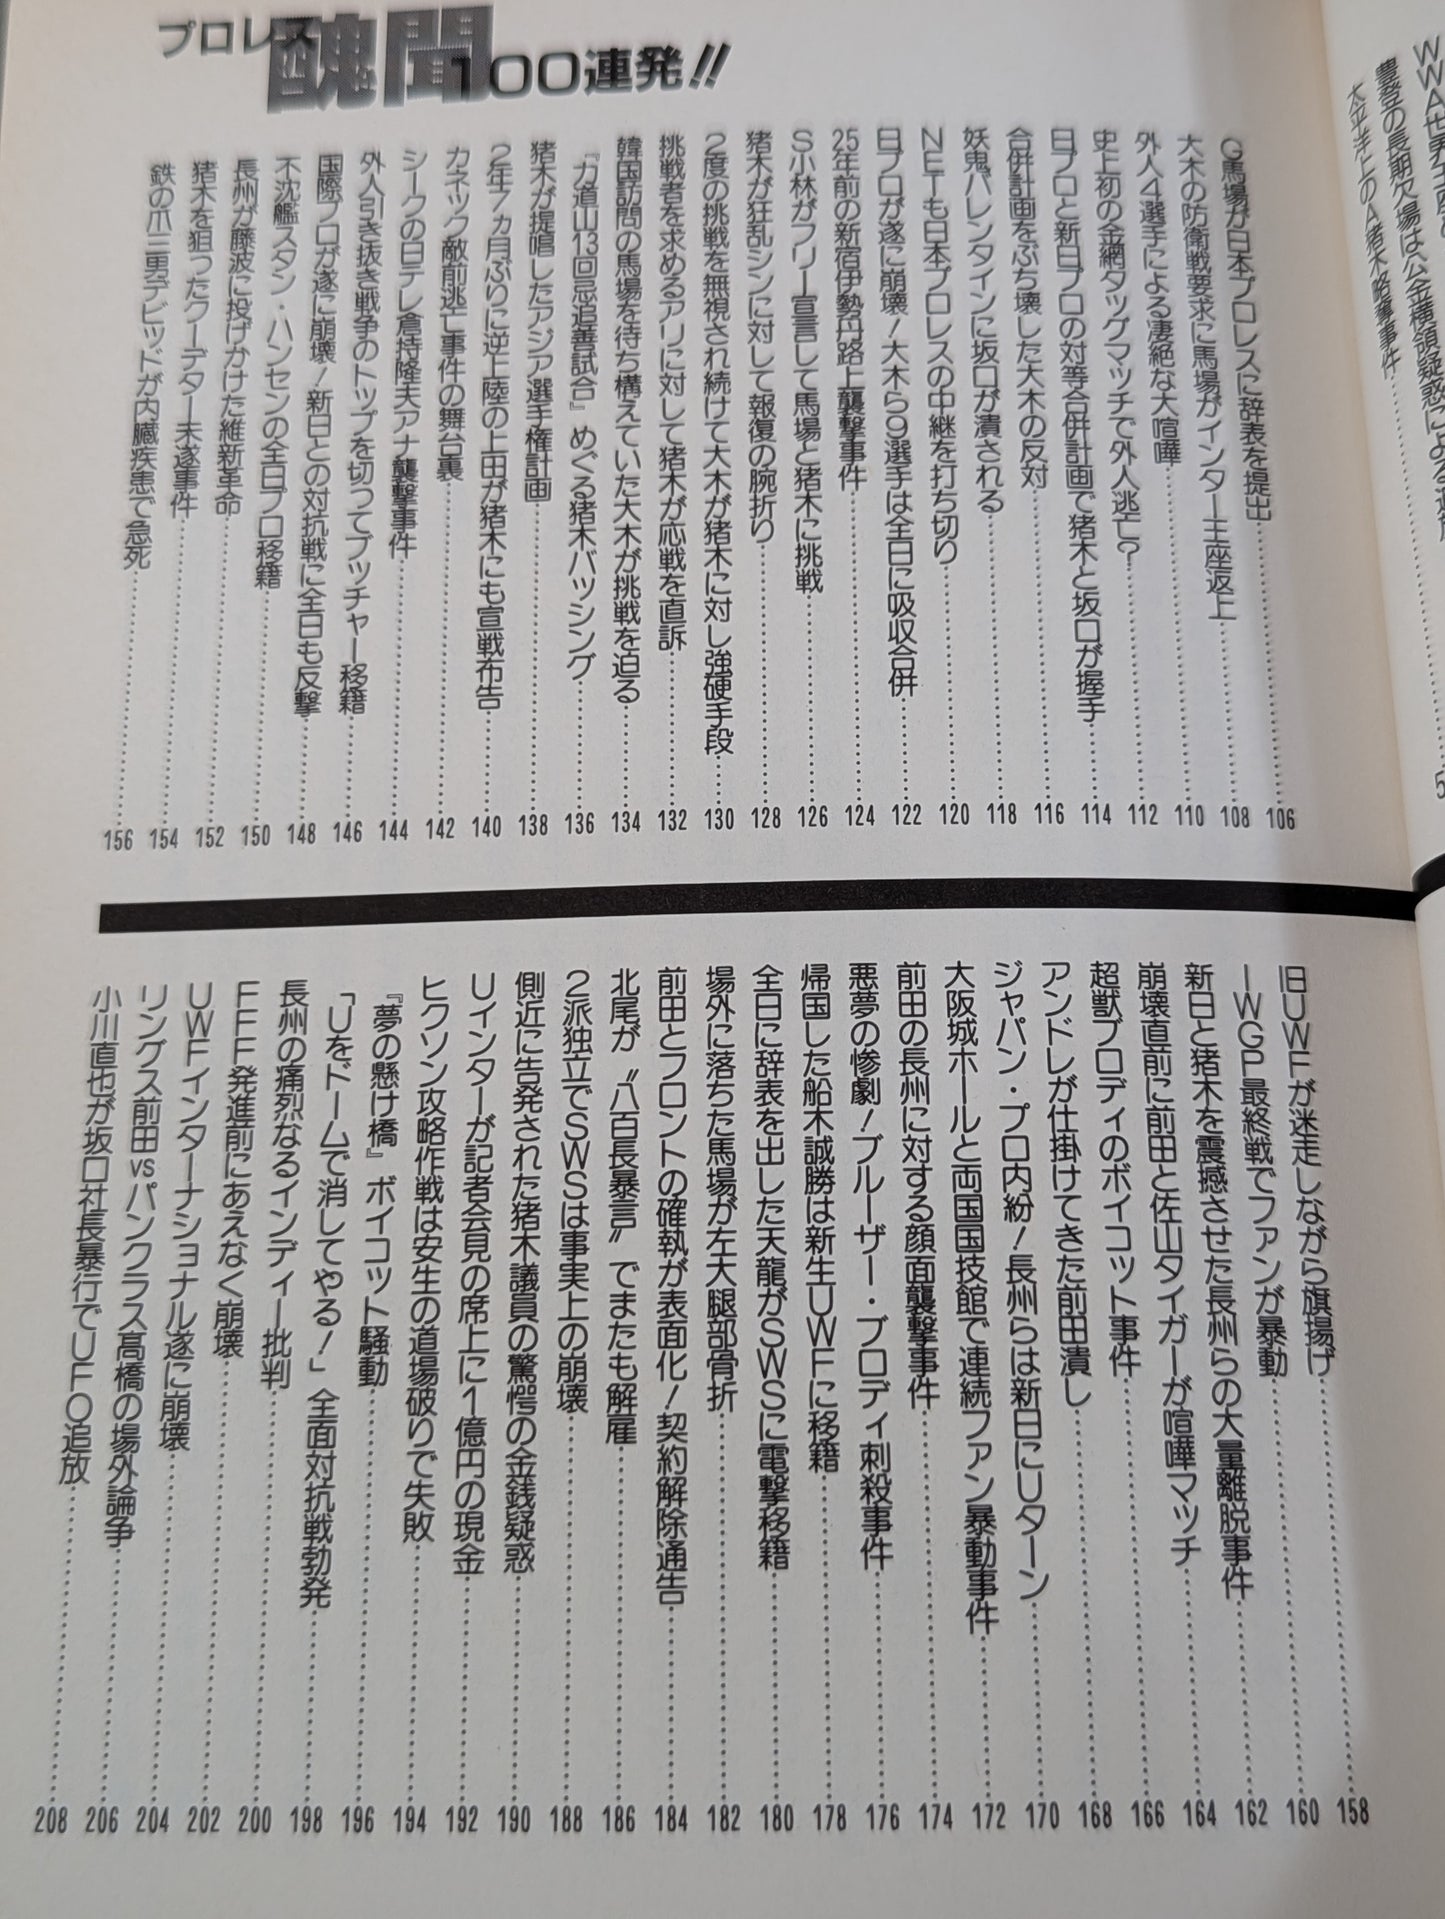 プロレス醜聞100連発!!
G馬場が日本プロレスに辞表を提出……106
大木の防衛戦要求に馬場がインター王座返上……108
外人4選手による凄絶な大喧嘩……110
史上初の金網タッグマッチで外人逃亡?……112
日プロと新日プロの対等合併計画で猪木と坂口が握手……114
合併計画をぶち壊した大木の反対……116
妖鬼バレンタインに坂口が潰される……118
NETも日本プロレスの中継を打ち切り……120
日プロが遂に崩壊!大木ら9選手は全日に吸収合併……122
25年前の新宿伊勢丹路上襲撃事件……124
S小林がフリー宣言して馬場と猪木に挑戦……126
猪木が狂乱シンに対して報復の腕折り……128
2度の挑戦を無視され続けて大木が猪木に対し強硬手段……130
挑戦者を求めるアリに対して猪木が応戦を直訴……132
韓国訪問の馬場を待ち構えていた大木が挑戦を迫る……134
『力道山13回忌追善試合』めぐる猪木バッシング……136
猪木が提唱したアジア選手権計画……138
2年7ヵ月ぶりに逆上陸の上田が猪木にも宣戦布告……140
カネック敵前逃亡事件の舞台裏……142
シークの日テレ倉持隆夫アナ襲撃事件……144
外人引き抜き戦争のトップを切ってブッチャー移籍……146
国際プロが遂に崩壊!新日との対抗戦に全日も反撃……148
不沈艦スタン・ハンセンの全日プロ移籍……150
長州が藤波に投げかけた維新革命……152
猪木を狙ったクーデター未遂事件……154
鉄の爪三男デビッドが内臓疾患で急死……156
旧UWFが迷走しながら旗揚げ……158
IWGP最終戦でファンが暴動……160
新日と猪木を震撼させた長州らの大量離脱事件……162
崩壊直前に前田と佐山タイガーが喧嘩マッチ……164
超獣ブロディのボイコット事件……166
アンドレが仕掛けてきた前田潰し……168
ジャパン・プロ内紛!長州らは新日にUターン……170
大阪城ホールと両国国技館で連続ファン暴動事件……172
前田の長州に対する顔面襲撃事件……174
悪夢の惨劇!ブルーザー・ブロディ刺殺事件……176
帰国した船木誠勝は新生UWFに移籍……178
全日に辞表を出した天龍がSWSに電撃移籍……180
場外に落ちた馬場が左大腿部骨折……182
前田とフロントの確執が表面化!契約解除通告……184
北尾が〝八百長暴言〟でまたも解雇……186
2派独立でSWSは事実上の崩壊……188
側近に告発された猪木議員の驚愕の金銭疑惑……190
Uインターが記者会見の席上に1億円の現金……192
ヒクソン攻略作戦は安生の道場破りで失敗……194
『夢の懸け橋』ボイコット騒動……196
「Uをドームで消してやる!」全面対抗戦勃発……198
長州の痛烈なるインディー批判……200
FFF発進前にあえなく崩壊……202
UWFインターナショナル遂に崩壊……204
リングス前田vsパンクラス高橋の場外論争……206
小川直也が坂口社長暴行でUFO追放……208
豊登の長期欠場は公金横領疑惑による追放
太平洋上のA猪木略奪事件